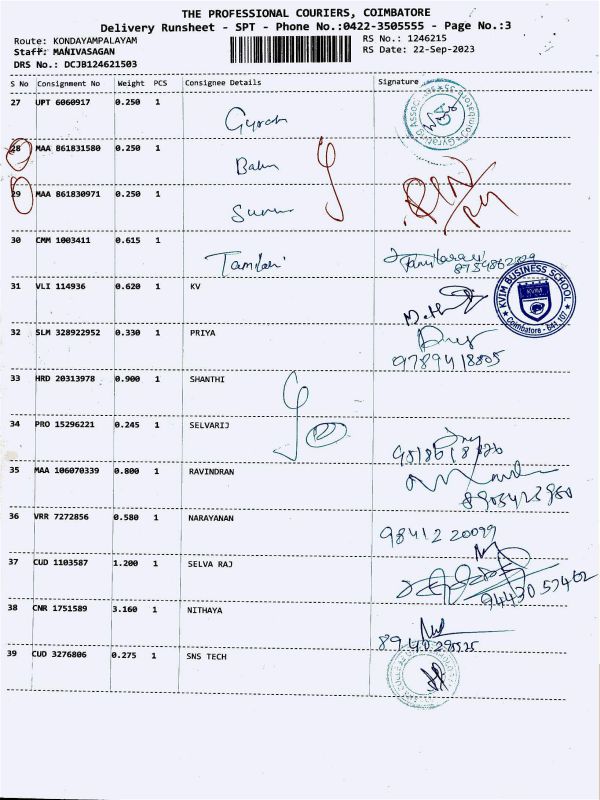 THE PROFESSIONAL COURIERS, COIMBATORE
Delivery Runsheet - SPT - Phone No.:0422-3505555 - Page No.:3
Route: KONDAYAMPALAYAM RS No.: 1246215
Staff: MANIVASAGAN RS Date: 22-Sep-2023
DRS No.: DCJB124621503
S No Consignment No Weight PCS Consignee Details Signature
27 UPT 6060917 0.250 1
28 MAA 861831580 0.250 1 Balu
29 MAA 861830971 0.250 1
30 CMM 1003411 0.615 1
31 VLI 114936 0.620 1 KV
KVIM BUSINESS SCHOOL
KVIM
Coimbatore - 641 107
32 SLM 328922952 0.330 1 PRIYA
9789418805
33 HRD 20313978 0.900 1 SHANTHI
34 PRO 15296221 0.245 1 SELVARIJ
35 MAA 106070339 0.800 1 RAVINDRAN
36 VRR 7272856 0.580 1 NARAYANAN
98412 20099
37 CUD 1103587 1.200 1 SELVA RAJ
38 CNR 1751589 3.160 1 NITHAYA
39 CUD 3276806 0.275 1 SNS TECH